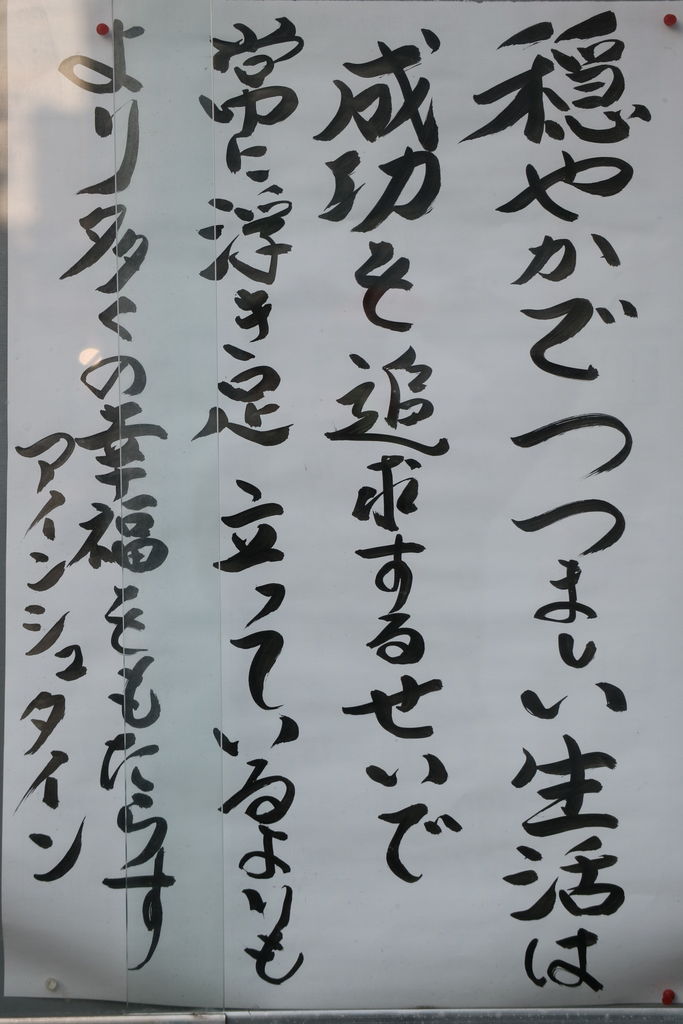 穏やかでつつましい生活は
成功を追求するせいで
常に浮き足立っているよりも
より多くの幸福をもたらす
アインシュタイン